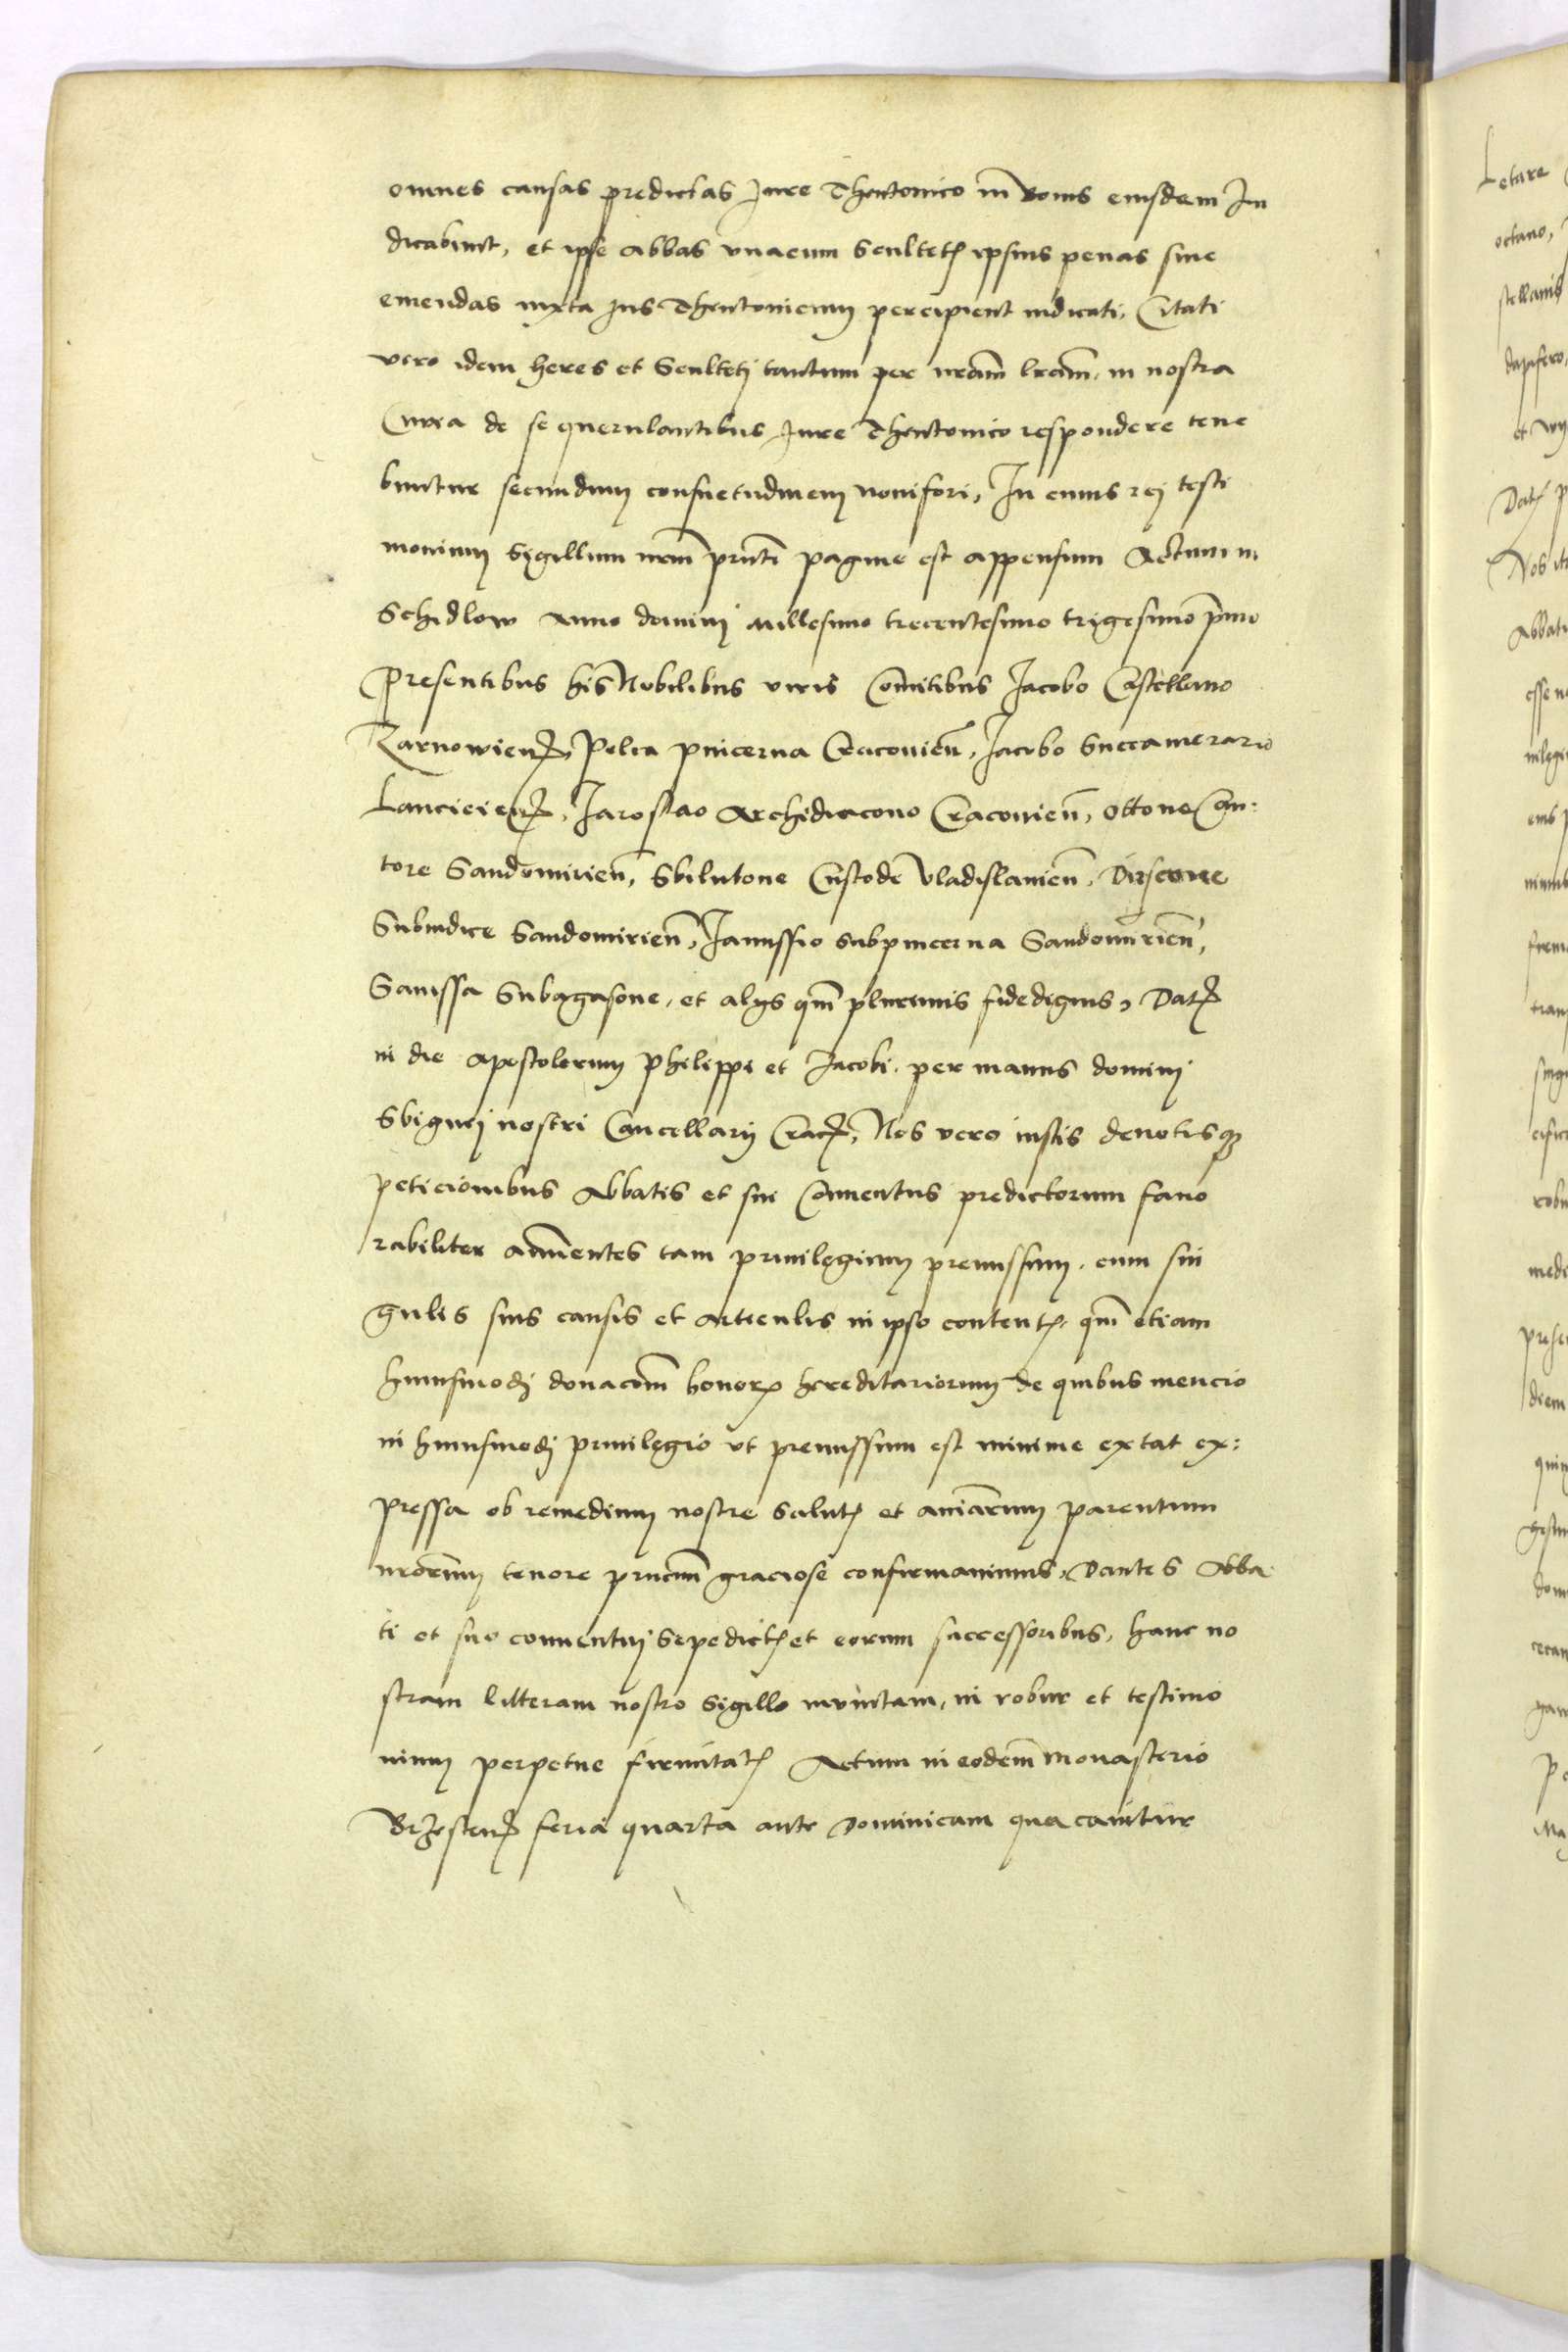 omnes causas predictas Jure Thentonico in bonis eiusdem Ju
dicabunt, et ipse Abbas vnacum Scultetꝭ ipsius penas siue
emendas iuxta Jus Thentonicum percipient iudicati, Citati
vero idem heres et Scultetj tantum per nr̃am lr̃am, in nostra
Curia de se querulantibus Jure Thentonico respondere tene
buntur secundum consuetudinem nouifori, In cuius rej testi
monium Sigillum nr̃m pñti pagine est appensum Actum in
Schidlow Anno dominj millesimo trecentesimo trigesimo p̃mo
Presentibus his Nobilibus viris Comitibus Jacobo Castellano
Tarnowienꝭ, Pelca pincerna Cracouieñ, Jacobo Succamerario
Lancicienꝭ, Jaroslao Archidiacono Cracouieñ, Ottone Can:
tore Sandomirieñ, Sbilutone Custode Vladislauieñ, Dirscone
Subiudice Sandomirieñ, Janussio subpincerna Sandomirieñ,
Sanissa Subagasone, et alijs qm̃ plurimis fidedignis, Datꝭ
in die Apostolorum Philippi et Jacobi, per manus dominj
Sbignej nostri Cancellarij Cracꝭ, Nos vero iustis deuotisqꝫ
peticionibus Abbatis et sui Conuentus predictorum fauo
rabiliter añuentes tam priuilegium premissum, cum sin
gulis suis causis et articulis in ipso contentꝭ, qm̃ etiam
huiusmodj donacõm bonorꝝ hereditariorum de quibus mencio
in huiusmodj priuilegio vt premissum est minime extat ex:
pressa ob remedium nostre Salutꝭ et animãrum parentum
nr̃orum tenore pñcium graciose confirmauimus, Dantes Abba
ti et suo conuentuj Sepedictꝭ et eorum successoribus, hanc no
stram litteram nostro Sigillo munitam, in robur et testimo
nium perpetue firmitatꝭ Actum in eodem Monasterio
Brzestenꝭ feria quarta ante Dominicam qua canitur
Letare
octauo,
stellanis
dapifero,
et
Datꝭ
Nos
Abbati